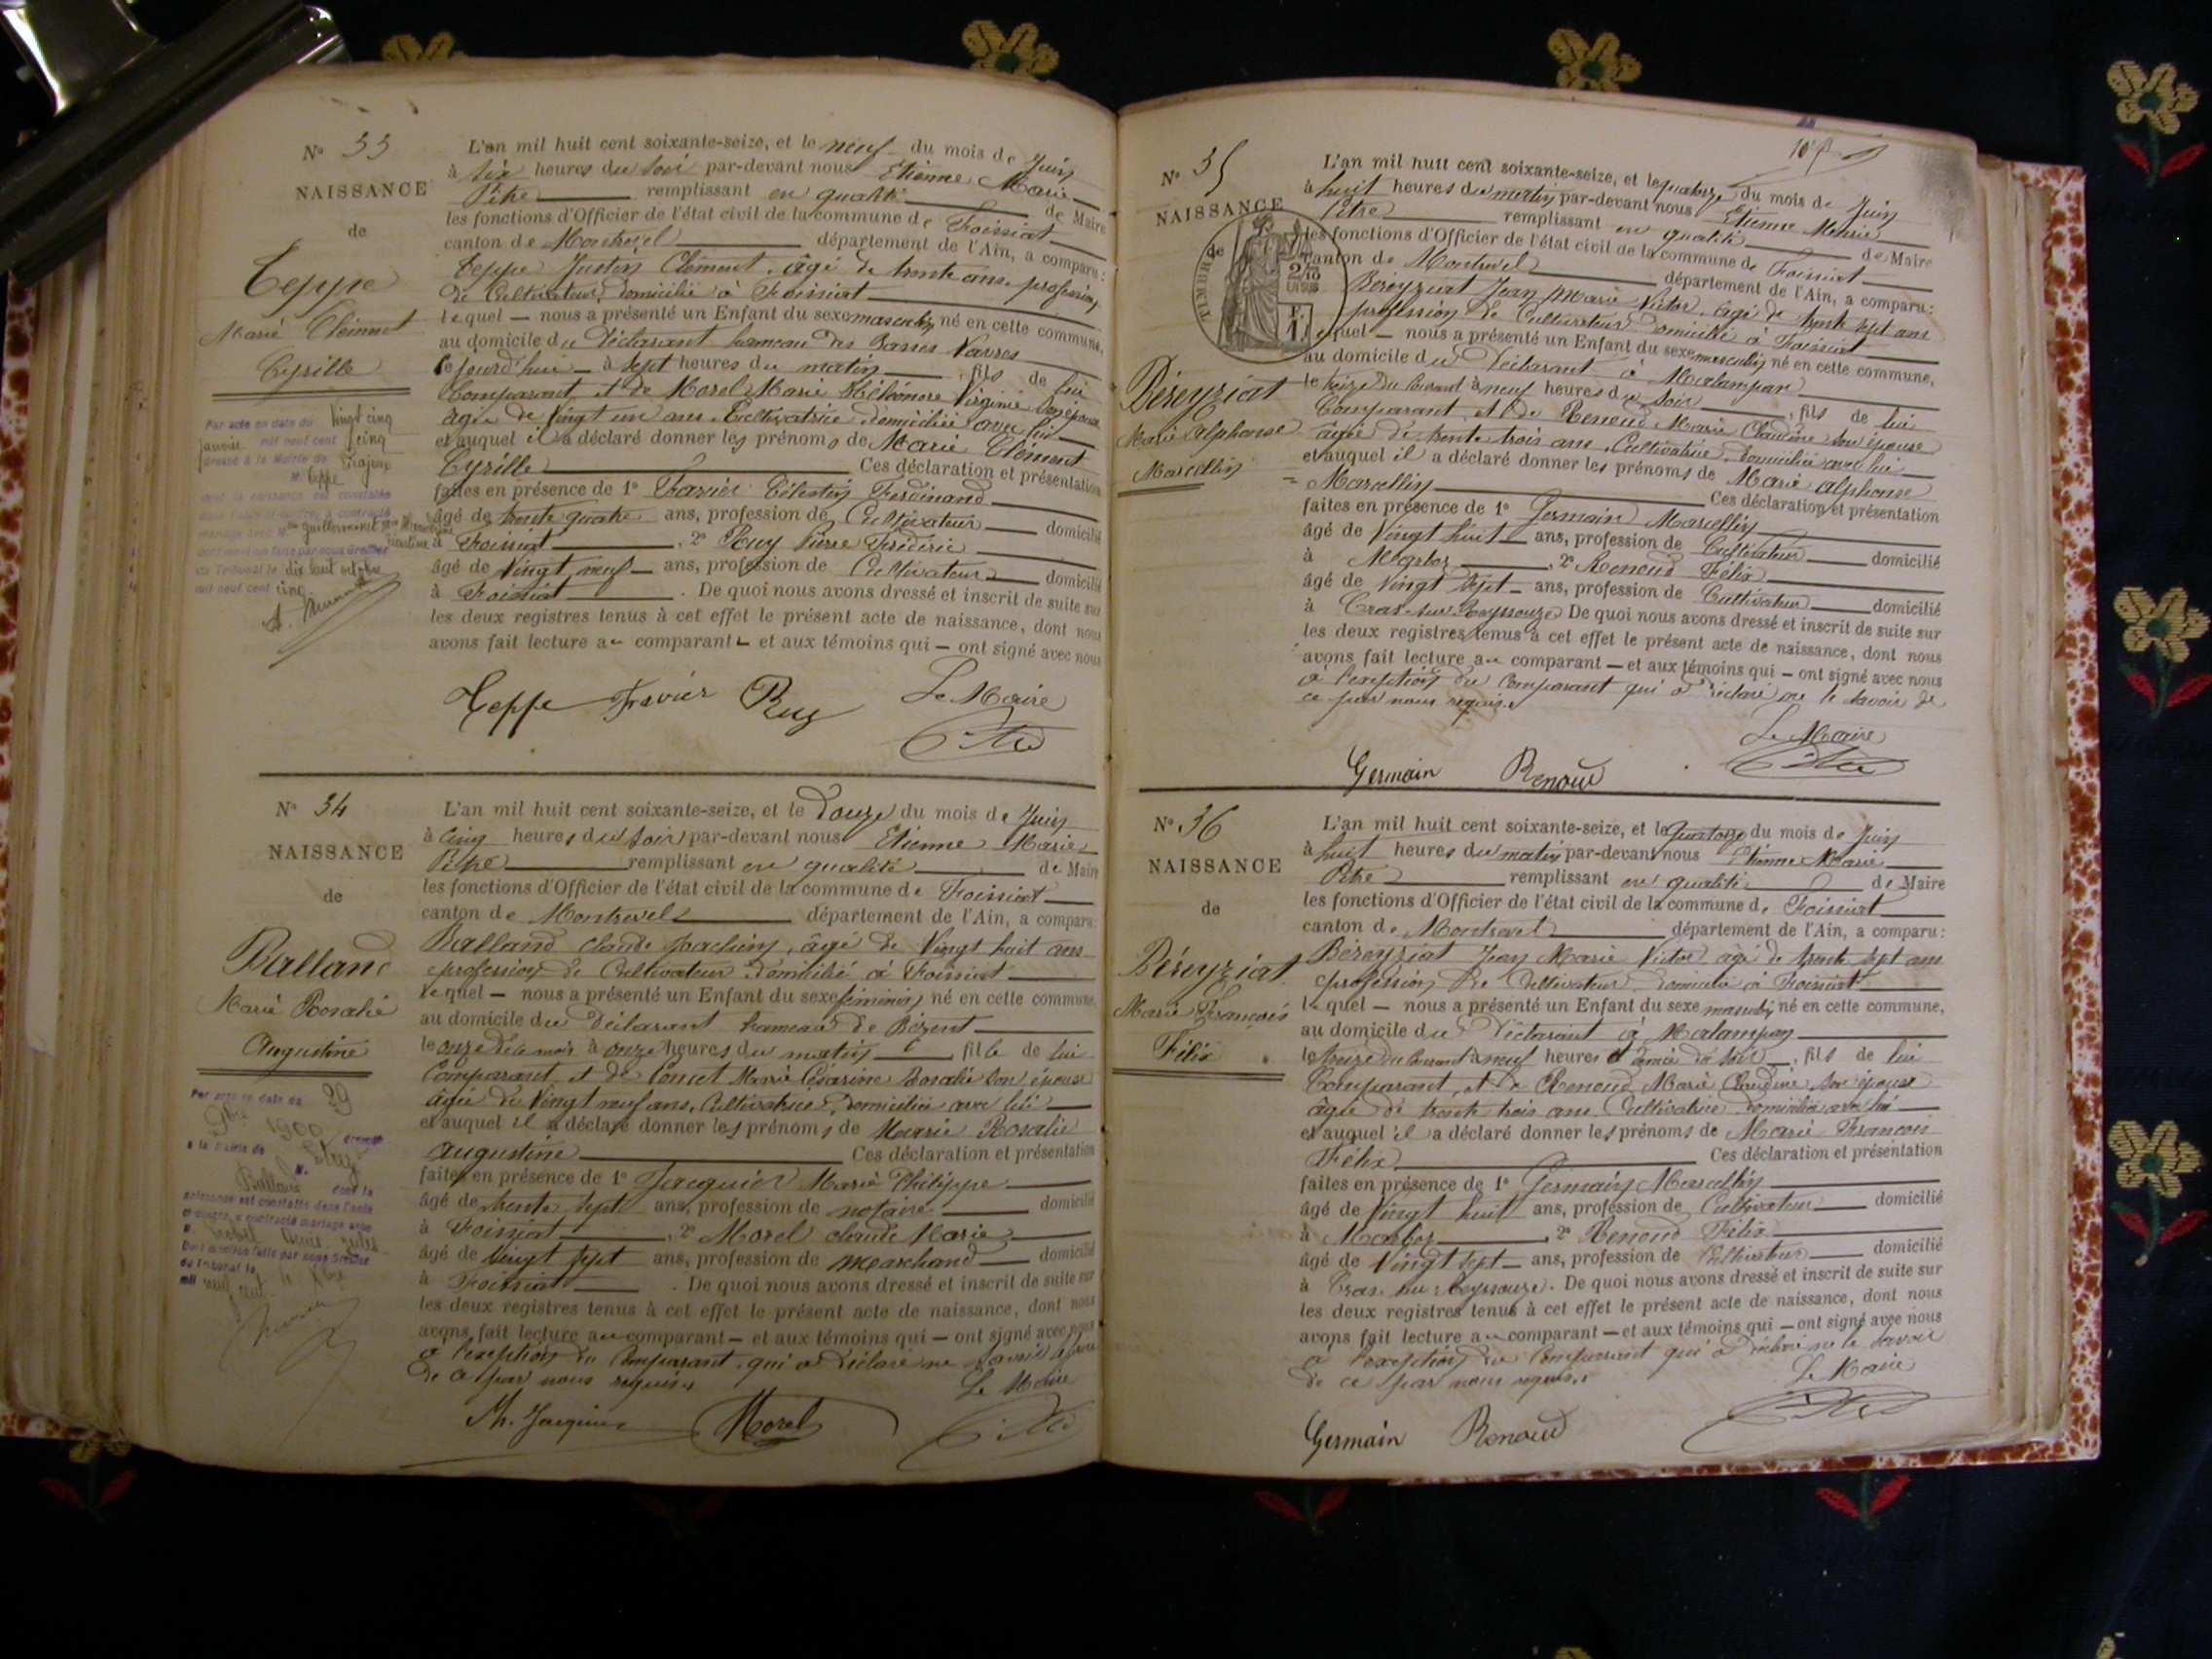 N° 33
NAISSANCE
de
Teppe
Marie Clément
Cyrille
Par acte en date du vingt cinq
janvier mil neuf cent cinq
dressé à la Mairie de
M. Teppe
dont la naissance est constatée
du Tribunal le dix huit octobre
mil neuf cent cinq
L'an mil huit cent soixante-seize, et le neuf du mois de Juin
à six heures du soir par-devant nous Etienne Marie
Pitre remplissant en qualité de Maire
les fonctions d'Officier de l'état civil de la commune de Foissiat
canton de Montrevel département de l'Ain, a comparu:
Teppe Justin Clément, âgé de trente ans, profession
de Cultivateur, domicilié à Foissiat
lequel — nous a présenté un Enfant du sexe masculin né en cette commune,
au domicile du déclarant hameau des Basses Vavres
cejourd'hui à sept heures du matin, fils de lui
Comparant et de Morel Marie Virginie son épouse
âgée de vingt un ans, Cultivatrice domiciliée avec lui
et auquel il a déclaré donner les prénoms de Marie Clément
Cyrille Ces déclaration et présentation
faites en présence de 1° Favier Célestin Ferdinand
âgé de trente quatre ans, profession de Cultivateur domicilié
à Foissiat, 2° Puy Pierre Frédéric
âgé de vingt neuf ans, profession de Cultivateur domicilié
à Foissiat. De quoi nous avons dressé et inscrit de suite sur
les deux registres tenus à cet effet le présent acte de naissance, dont nous
avons fait lecture au comparant et aux témoins qui — ont signé avec nous
Teppe Favier Puy Le Maire
Pitre
N° 34
NAISSANCE
de
Balland
Marie Rosalie
Augustine
Par acte en date du 29
1900
à la Mairie de
Balland dont la
naissance est constatée dans l'acte
L'an mil huit cent soixante-seize, et le douze du mois de Juin
à cinq heures du soir par-devant nous Etienne Marie
Pitre remplissant en qualité de Maire
les fonctions d'Officier de l'état civil de la commune de Foissiat
canton de Montrevel département de l'Ain, a comparu
Balland Claude Joachim, âgé de vingt huit ans
profession de Cultivateur domicilié à Foissiat
lequel — nous a présenté un Enfant du sexe féminin né en cette commune,
au domicile du déclarant hameau de Bézent
le onze de ce mois à onze heures du matin, fille de lui
Comparant et de Marie Césarine Rosalie son épouse
âgée de vingt neuf ans, Cultivatrice, domiciliée avec lui
et auquel il a déclaré donner les prénoms de Marie Rosalie
Augustine Ces déclaration et présentation
faites en présence de 1° Jacquier Marie Philippe
âgé de trente sept ans, profession de notaire domicilié
à Foissiat, 2° Morel Claude Marie
âgé de vingt sept ans, profession de marchand domicilié
à Foissiat. De quoi nous avons dressé et inscrit de suite sur
les deux registres tenus à cet effet le présent acte de naissance, dont nous
avons fait lecture au comparant — et aux témoins qui — ont signé avec nous
à l'exception du Comparant qui a déclaré ne savoir
de ce par nous requis.
Le Maire
Ph. Jacquier Morel Pitre
N° 35
NAISSANCE
de
Béreyziat
Marie Alphonse
Marcellin
L'an mil huit cent soixante-seize, et le quatorze du mois de Juin
à huit heures du matin par-devant nous Etienne Marie
Pitre remplissant en qualité de Maire
les fonctions d'Officier de l'état civil de la commune de Foissiat
canton de Montrevel département de l'Ain, a comparu:
Béreyziat Jean Marie Victor, âgé de trente sept ans
profession de Cultivateur domicilié à Foissiat
lequel — nous a présenté un Enfant du sexe masculin né en cette commune,
au domicile du déclarant à Malampan
le treize du Courant à neuf heures du soir, fils de lui
Comparant et de Renoud Marie Claudine son épouse
âgée de trente trois ans, Cultivatrice, domiciliée avec lui
et auquel il a déclaré donner les prénoms de Marie Alphonse
Marcellin Ces déclaration et présentation
faites en présence de 1° Germain Marcellin
âgé de vingt huit ans, profession de Cultivateur domicilié
à Marboz, 2° Renoud Félix
âgé de vingt sept ans, profession de Cultivateur domicilié
à Cras sur Reyssouze De quoi nous avons dressé et inscrit de suite sur
les deux registres tenus à cet effet le présent acte de naissance, dont nous
avons fait lecture au comparant — et aux témoins qui — ont signé avec nous
à l'exception du Comparant qui a déclaré ne le savoir de
ce par nous requis.
Le Maire
Germain Renoud Pitre
N° 36
NAISSANCE
de
Béreyziat
Marie François
Félix
L'an mil huit cent soixante-seize, et le quatorze du mois de Juin
à huit heures du matin par-devant nous Etienne Marie
Pitre remplissant en qualité de Maire
les fonctions d'Officier de l'état civil de la commune de Foissiat
canton de Montrevel département de l'Ain, a comparu:
Béreyziat Jean Marie Victor âgé de trente sept ans
profession de Cultivateur, domicilié à Foissiat
lequel — nous a présenté un Enfant du sexe masculin né en cette commune,
au domicile du déclarant à Malampan
le treize du Courant à neuf heures et demie du soir, fils de lui
Comparant, et de Renoud Marie Claudine son épouse
âgée de trente trois ans Cultivatrice domiciliée avec lui
et auquel il a déclaré donner les prénoms de Marie François
Félix Ces déclaration et présentation
faites en présence de 1° Germain Marcellin
âgé de vingt huit ans, profession de Cultivateur domicilié
à Marboz, 2° Renoud Félix
âgé de vingt sept ans, profession de Cultivateur domicilié
à Cras sur Reyssouze. De quoi nous avons dressé et inscrit de suite sur
les deux registres tenus à cet effet le présent acte de naissance, dont nous
avons fait lecture au comparant — et aux témoins qui — ont signé avec nous
à l'exception du Comparant qui a déclaré ne le savoir
de ce par nous requis.
Le Maire
Germain Renoud Pitre